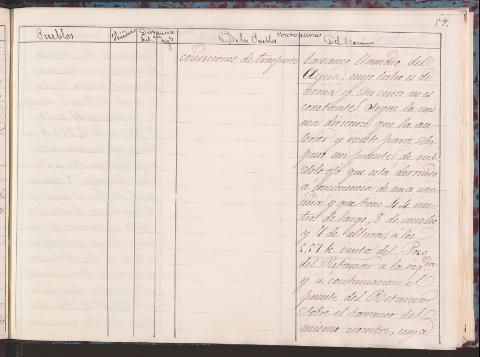 59.
Pueblos
Distancia
De los Pueblos
Del Camino
condiciones de trasporte
barranco llamdio del
Agua, cuyo lecho es de
arena y su curso no es
constante. Sigue la mis
ma direccion que la an
terior y existe para su
paso un puente de un
solo ojo que está derruido
a consecuencia de una ave
nida y que tiene 44 me
tros de largo, 8 de ancho
y 7 de altura; á los
5,57 k. venta del Pozo
del Retamar á la izqda
y á continuacion el
puente del Retamar
sobre el barranco del
mismo nombre, cuya